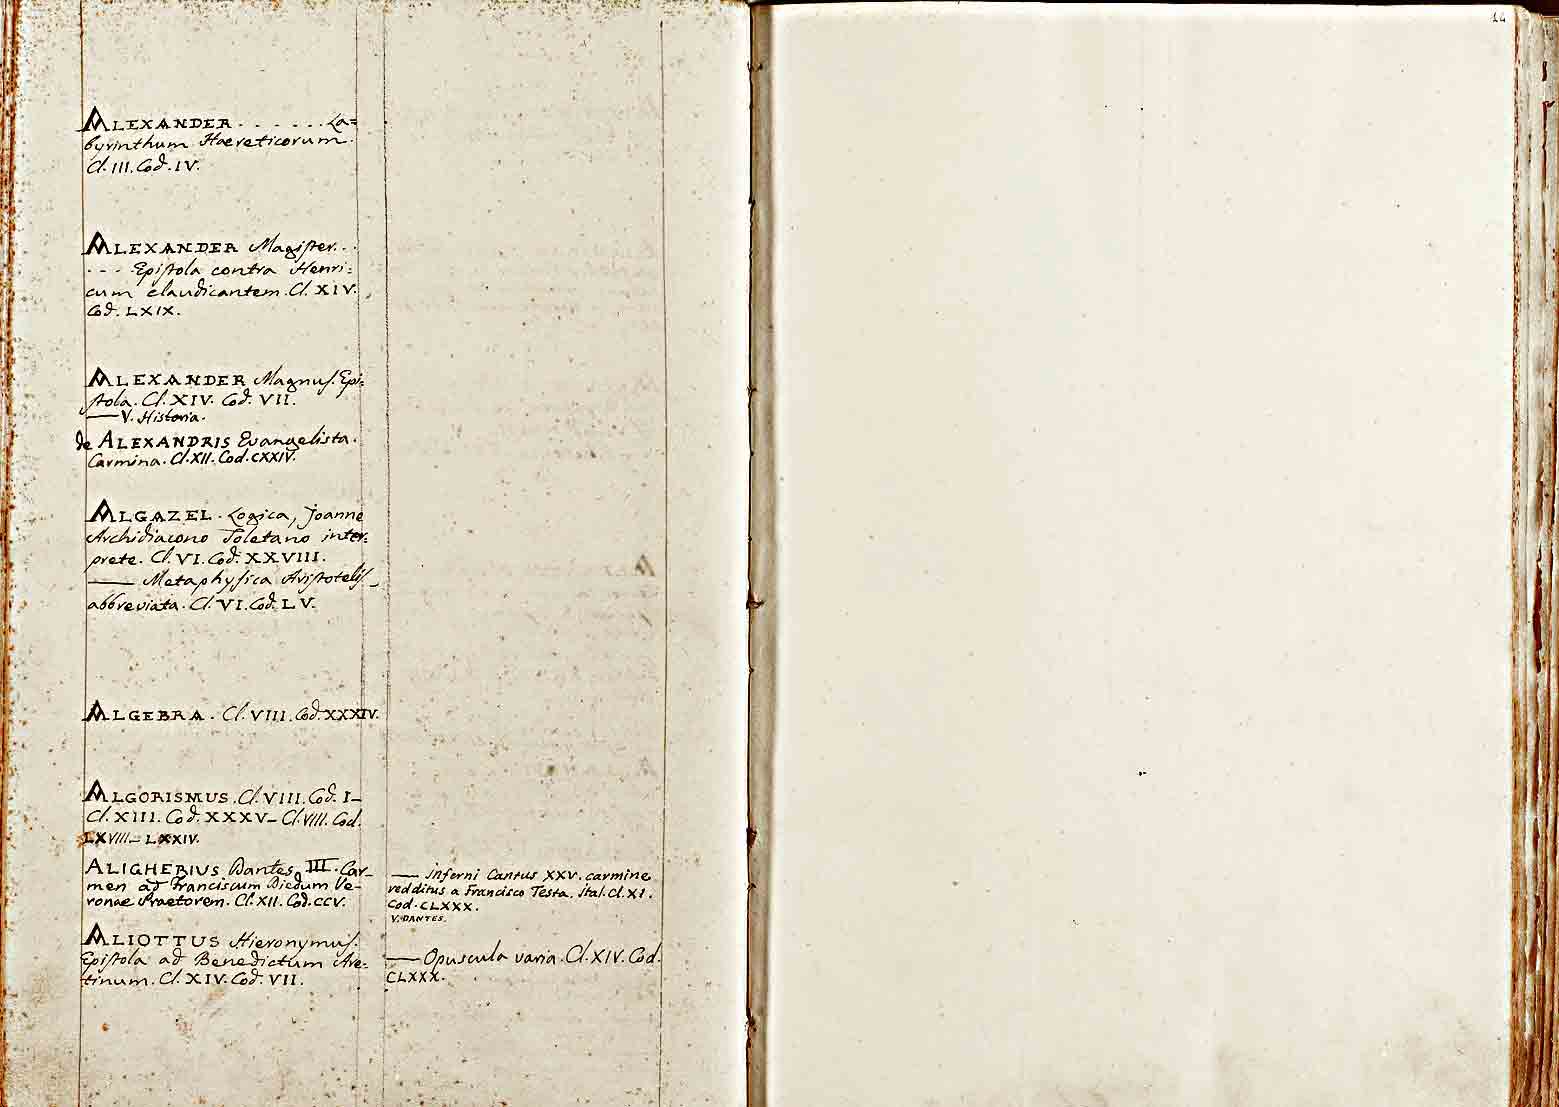 ALEXANDER . . . . . . La=
byrinthum Haereticorum.
Cl. III. Cod. IV.
ALEXANDER Magister. . .
. . . Epistola contra Henri=
cum claudicantem. Cl. XIV.
Cod. LXIX.
ALEXANDER Magnus. Epi=
stola. Cl. XIV. Cod. VII.
— V. Historia.
de ALEXANDRIS Evangelista.
Carmina. Cl. XII. Cod. CXXIV.
ALGAZEL. Logica, Joanne
Archidiacono Toletano inter=
prete. Cl. VI. Cod. XXVIII.
— Metaphysica Aristotelis
abbreviata. Cl. VI. Cod. LV.
ALGEBRA. Cl. VIII. Cod. XXXIV.
ALGORISMUS. Cl. VIII. Cod. I—
Cl. XIII. Cod. XXXV— Cl. VIII. Cod.
LXVIII— LXXIV.
ALIGHERIUS Dantes III. Car-
men ad Franciscum Diedum Ve-
ronae Praetorem. Cl. XII. Cod. CCV.
ALIOTTUS Hieronymus.
Epistola ad Benedictum Are=
tinum. Cl. XIV. Cod. VII.
— Inferni Cantus XXV. carmine
redditus a Francisco Testa. Ital. Cl. XI.
Cod. CLXXX.
V. DANTES.
— Opuscula varia. Cl. XIV. Cod.
CLXXX.
14